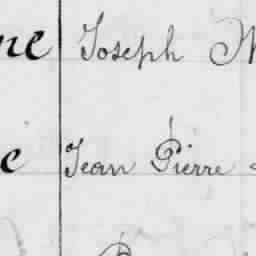 ne Joseph
e Jean Pierre